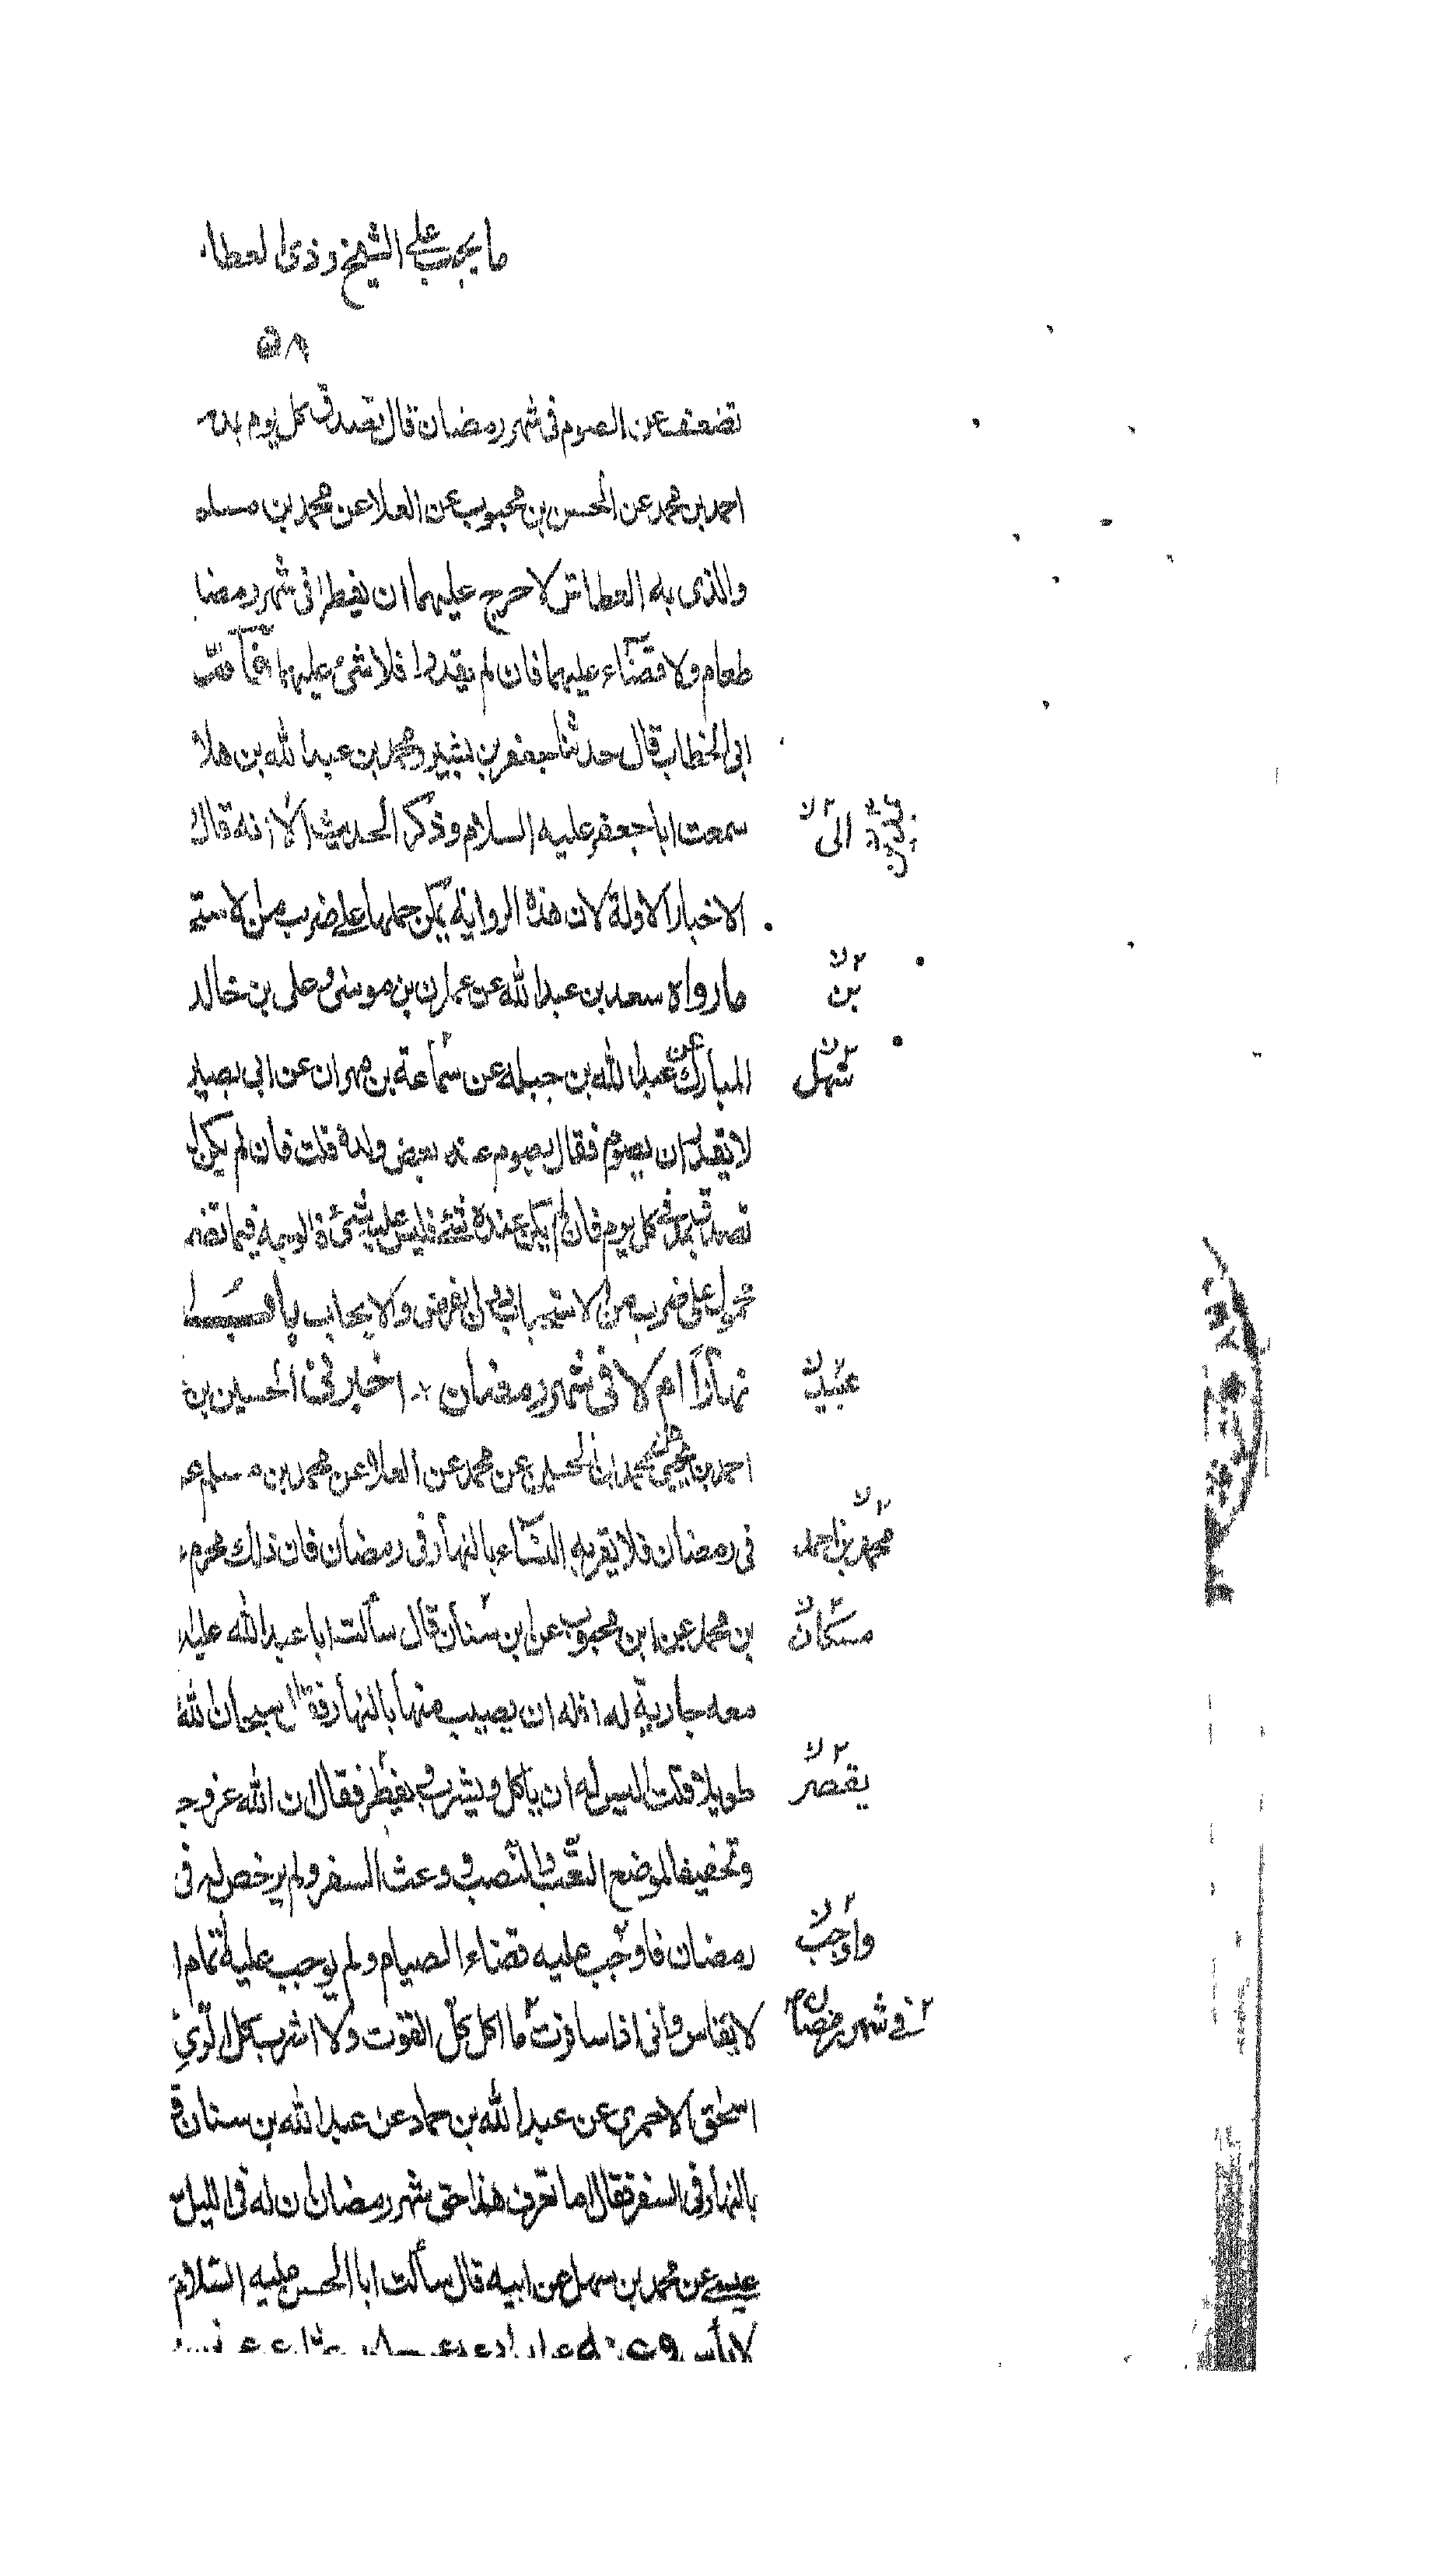 ما يجب على الشيخ وذى العطا
٥٨
تضعف عن الصوم فى شهر رمضان قال تصدق كل يوم بمد
احمد بن محمد عن الحسن بن محبوب عن العلا عن محمد بن مسلم
والذى به العطاش لا حرج عليهما ان يفطرا فى شهر رمضا
طعام ولا قضاء عليهما فان لم يقدرا فلا شئ عليهما فاما
ابى الخطاب قال حدثنا جعفر بن بشير ومحمد بن عبدالله بن هلا
سمعت ابا جعفر عليه السلام وذكر الحديث الا انه قال
الى
الاخبار الاولة لان هذه الرواية يمكن حملها على ضرب من الاستح
ما رواه سعد بن عبدالله عن عمران بن موسى وعلى بن خالد
بن
المبارك عن عبدالله بن جبله عن سماعة بن مهران عن ابى بصير
سهل
لا يقدر ان يصوم فقال يصوم عنه بعض ولده قلت فان لم يكن ل
تصدق بمد فى كل يوم فان لم يكن عنده شئ فليس عليه شئ فالوجه فيما تضم
محمول على ضرب من الاستحباب دون الفرض والايجاب باب
نهارا ام لا فى شهر رمضان اخبرنى الحسين بن
عبيد
احمد بن يحيى محمد بن الحسين عن محمد عن العلا عن محمد بن مسلم عـ
فى رمضان فلا يقرب النساء بالنهار فى رمضان فان ذلك محرم
محمد بن احمد
بن محمد عن ابن محبوب عن ابن سنان قال سألت ابا عبدالله عليه
مسكان
معه جارية له افله ان يصيب منها بالنهار فقال سبحان الله
طويلا قلت اليس له ان ياكل ويشرب ويفطر فقال ان الله عزوجـ
يقصر
وتخفيفا لموضع التعب والنصب ووعث السفر ولم يرخص له فى
رمضان فاوجب عليه قضاء الصيام ولم يوجب عليه تمام ا
واوجب
لا يقاس وانى اذا سافرت ما اكل كل القوت ولا اشرب كل الرى
فى شهر رمضان
اسحق الاحمرى عن عبدالله بن حماد عن عبدالله بن سنان ق
بالنهار فى السفر فقال اما تعرف هذا حق شهر رمضان ان له فى الليل
عيسى عن محمد بن سهل عن ابيه قال سألت ابا الحسن عليه السلام